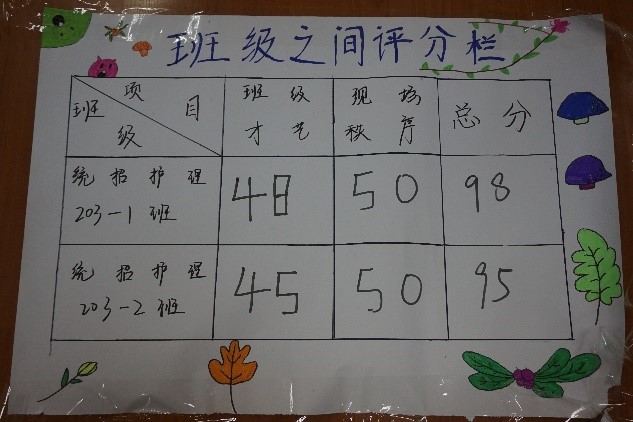 班级之间评分栏
项目
班级
班级才艺
现场秩序
总分
统招护理
203-1班
48
50
98
统招护理
203-2班
45
50
95